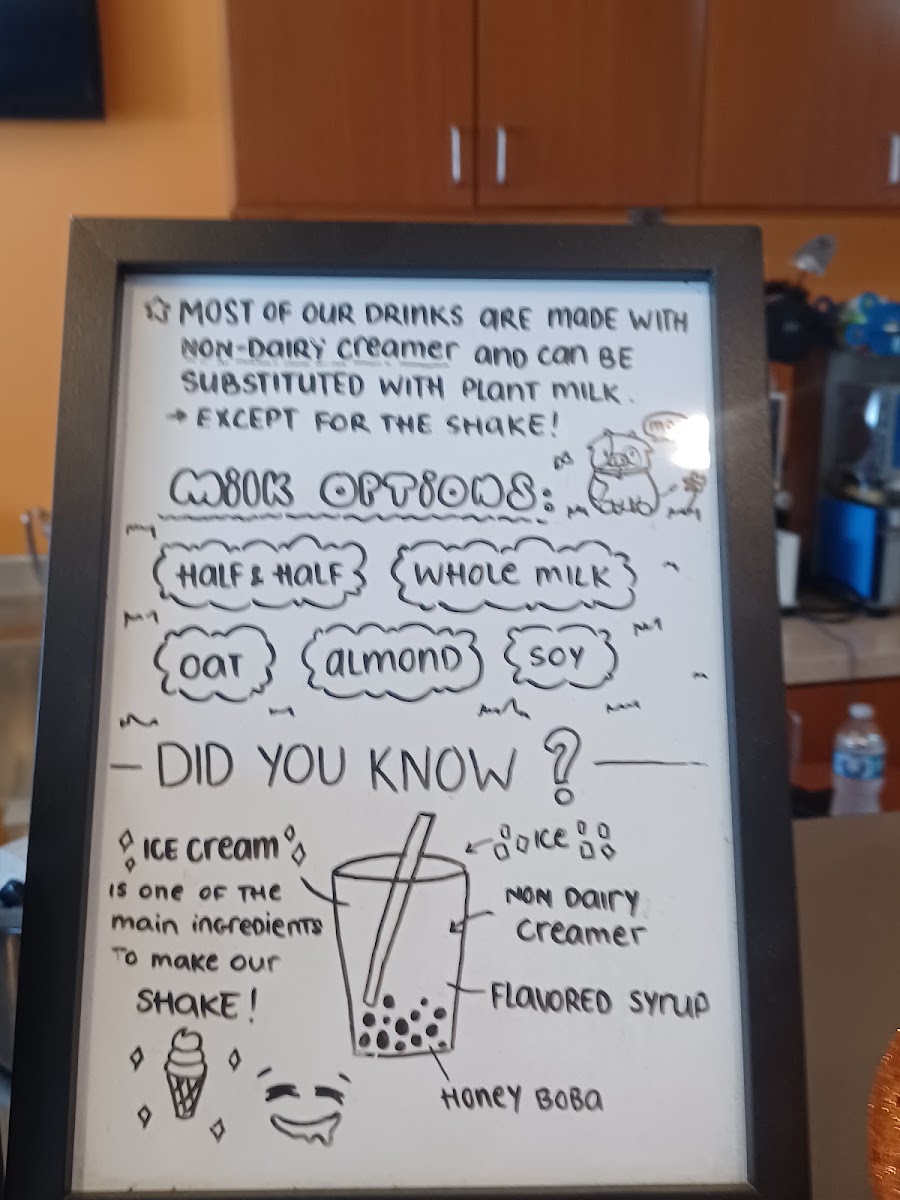 MOST OF OUR DRINKS ARE MADE WITH
NON-DAIRY CREAMER AND CAN BE
SUBSTITUTED WITH PLANT MILK.
→ EXCEPT FOR THE SHAKE!
MILK OPTIONS:
HALF & HALF
WHOLE MILK
OAT
ALMOND
SOY
DID YOU KNOW?
ICE CREAM
IS ONE OF THE
MAIN INGREDIENTS
TO MAKE OUR
SHAKE!
ICE
NON DAIRY
CREAMER
FLAVORED SYRUP
HONEY BOBA